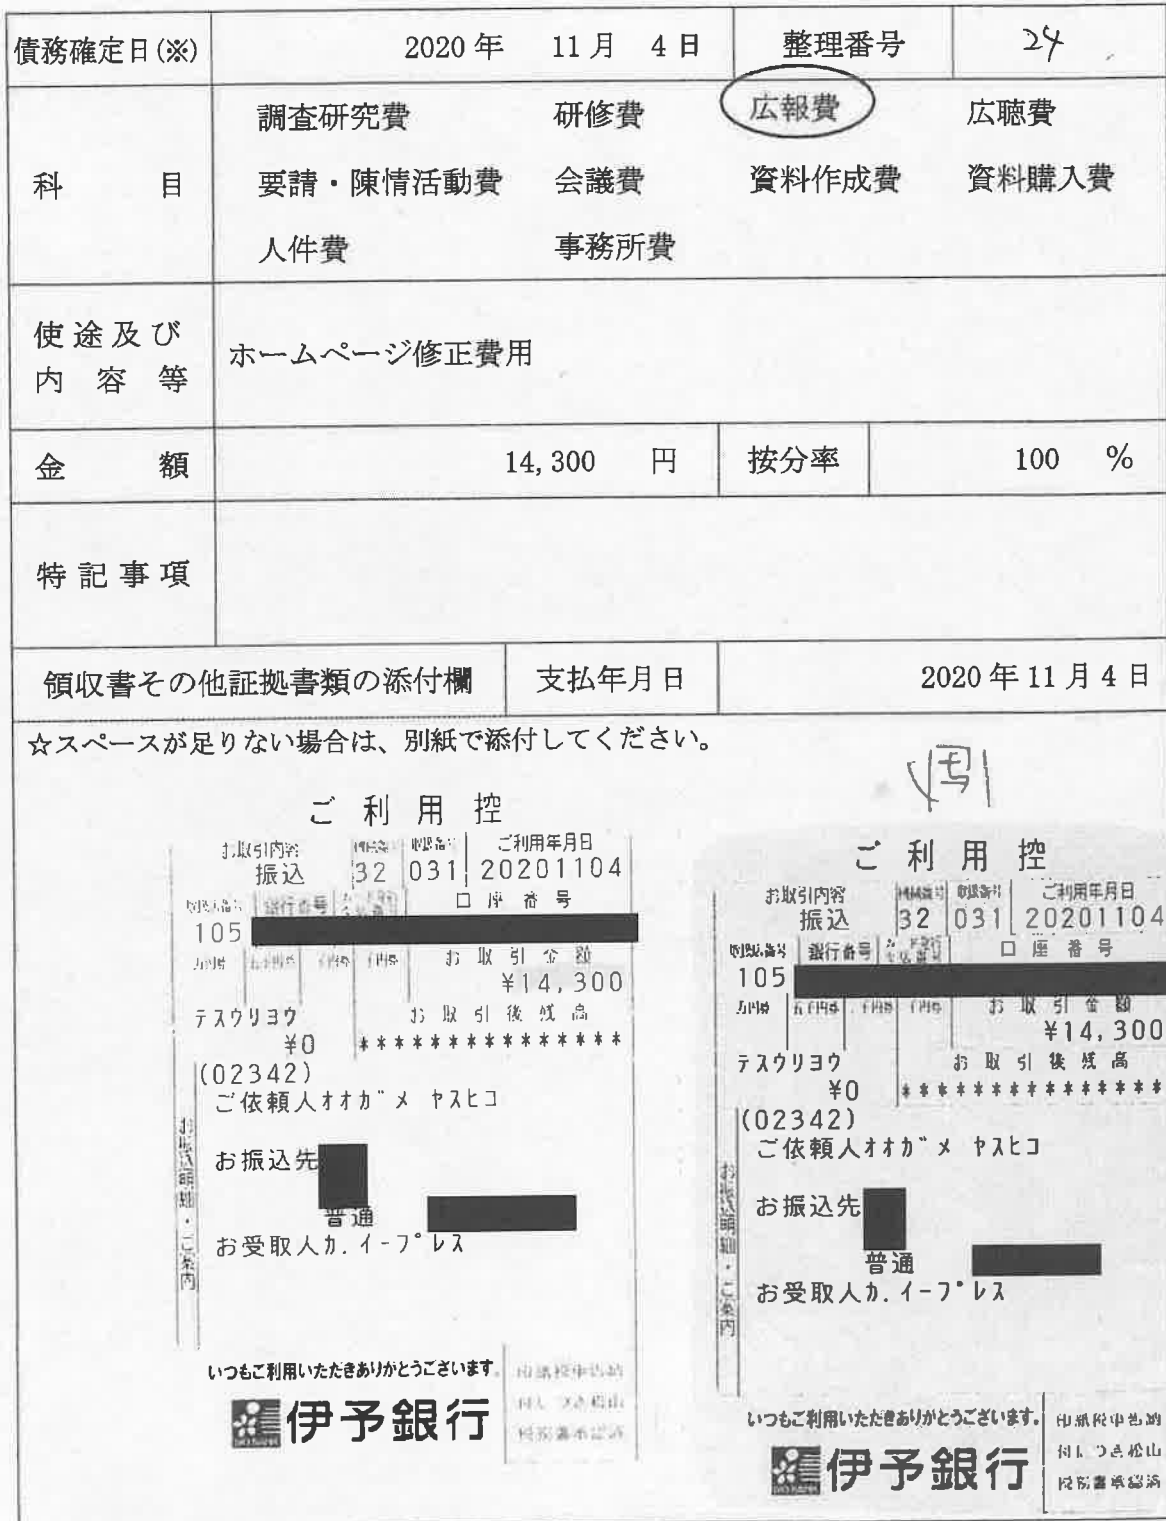 債務確定日(※) 2020年 11月 4日 整理番号 24
調査研究費 研修費 広報費 広聴費
科目 要請・陳情活動費 会議費 資料作成費 資料購入費
人件費 事務所費
使途及び
内容等
ホームページ修正費用
金額 14,300 円 按分率 100 %
特記事項
領収書その他証拠書類の添付欄 支払年月日 2020年11月4日
☆スペースが足りない場合は、別紙で添付してください。
ご利用控
お取引内容 ご利用年月日
振込 32 031 20201104
銀行番号 口座番号
105
お取引金額
¥14,300
テスウリヨウ お取引後残高
¥0 **************
(02342)
ご依頼人オオガメ ヤスヒコ
お振込先
普通
お受取人カ.イープレス
お振込明細・ご案内
いつもご利用いただきありがとうございます。
伊予銀行
写
ご利用控
お取引内容 機械番号 取扱番号 ご利用年月日
振込 32 031 20201104
銀行番号 口座番号
105
お取引金額
¥14,300
テスウリヨウ お取引後残高
¥0 **************
(02342)
ご依頼人オオガメ ヤスヒコ
お振込先
普通
お受取人カ.イープレス
お振込明細・ご案内
いつもご利用いただきありがとうございます。
伊予銀行
印紙税申告納
付につき松山
税務署承認済